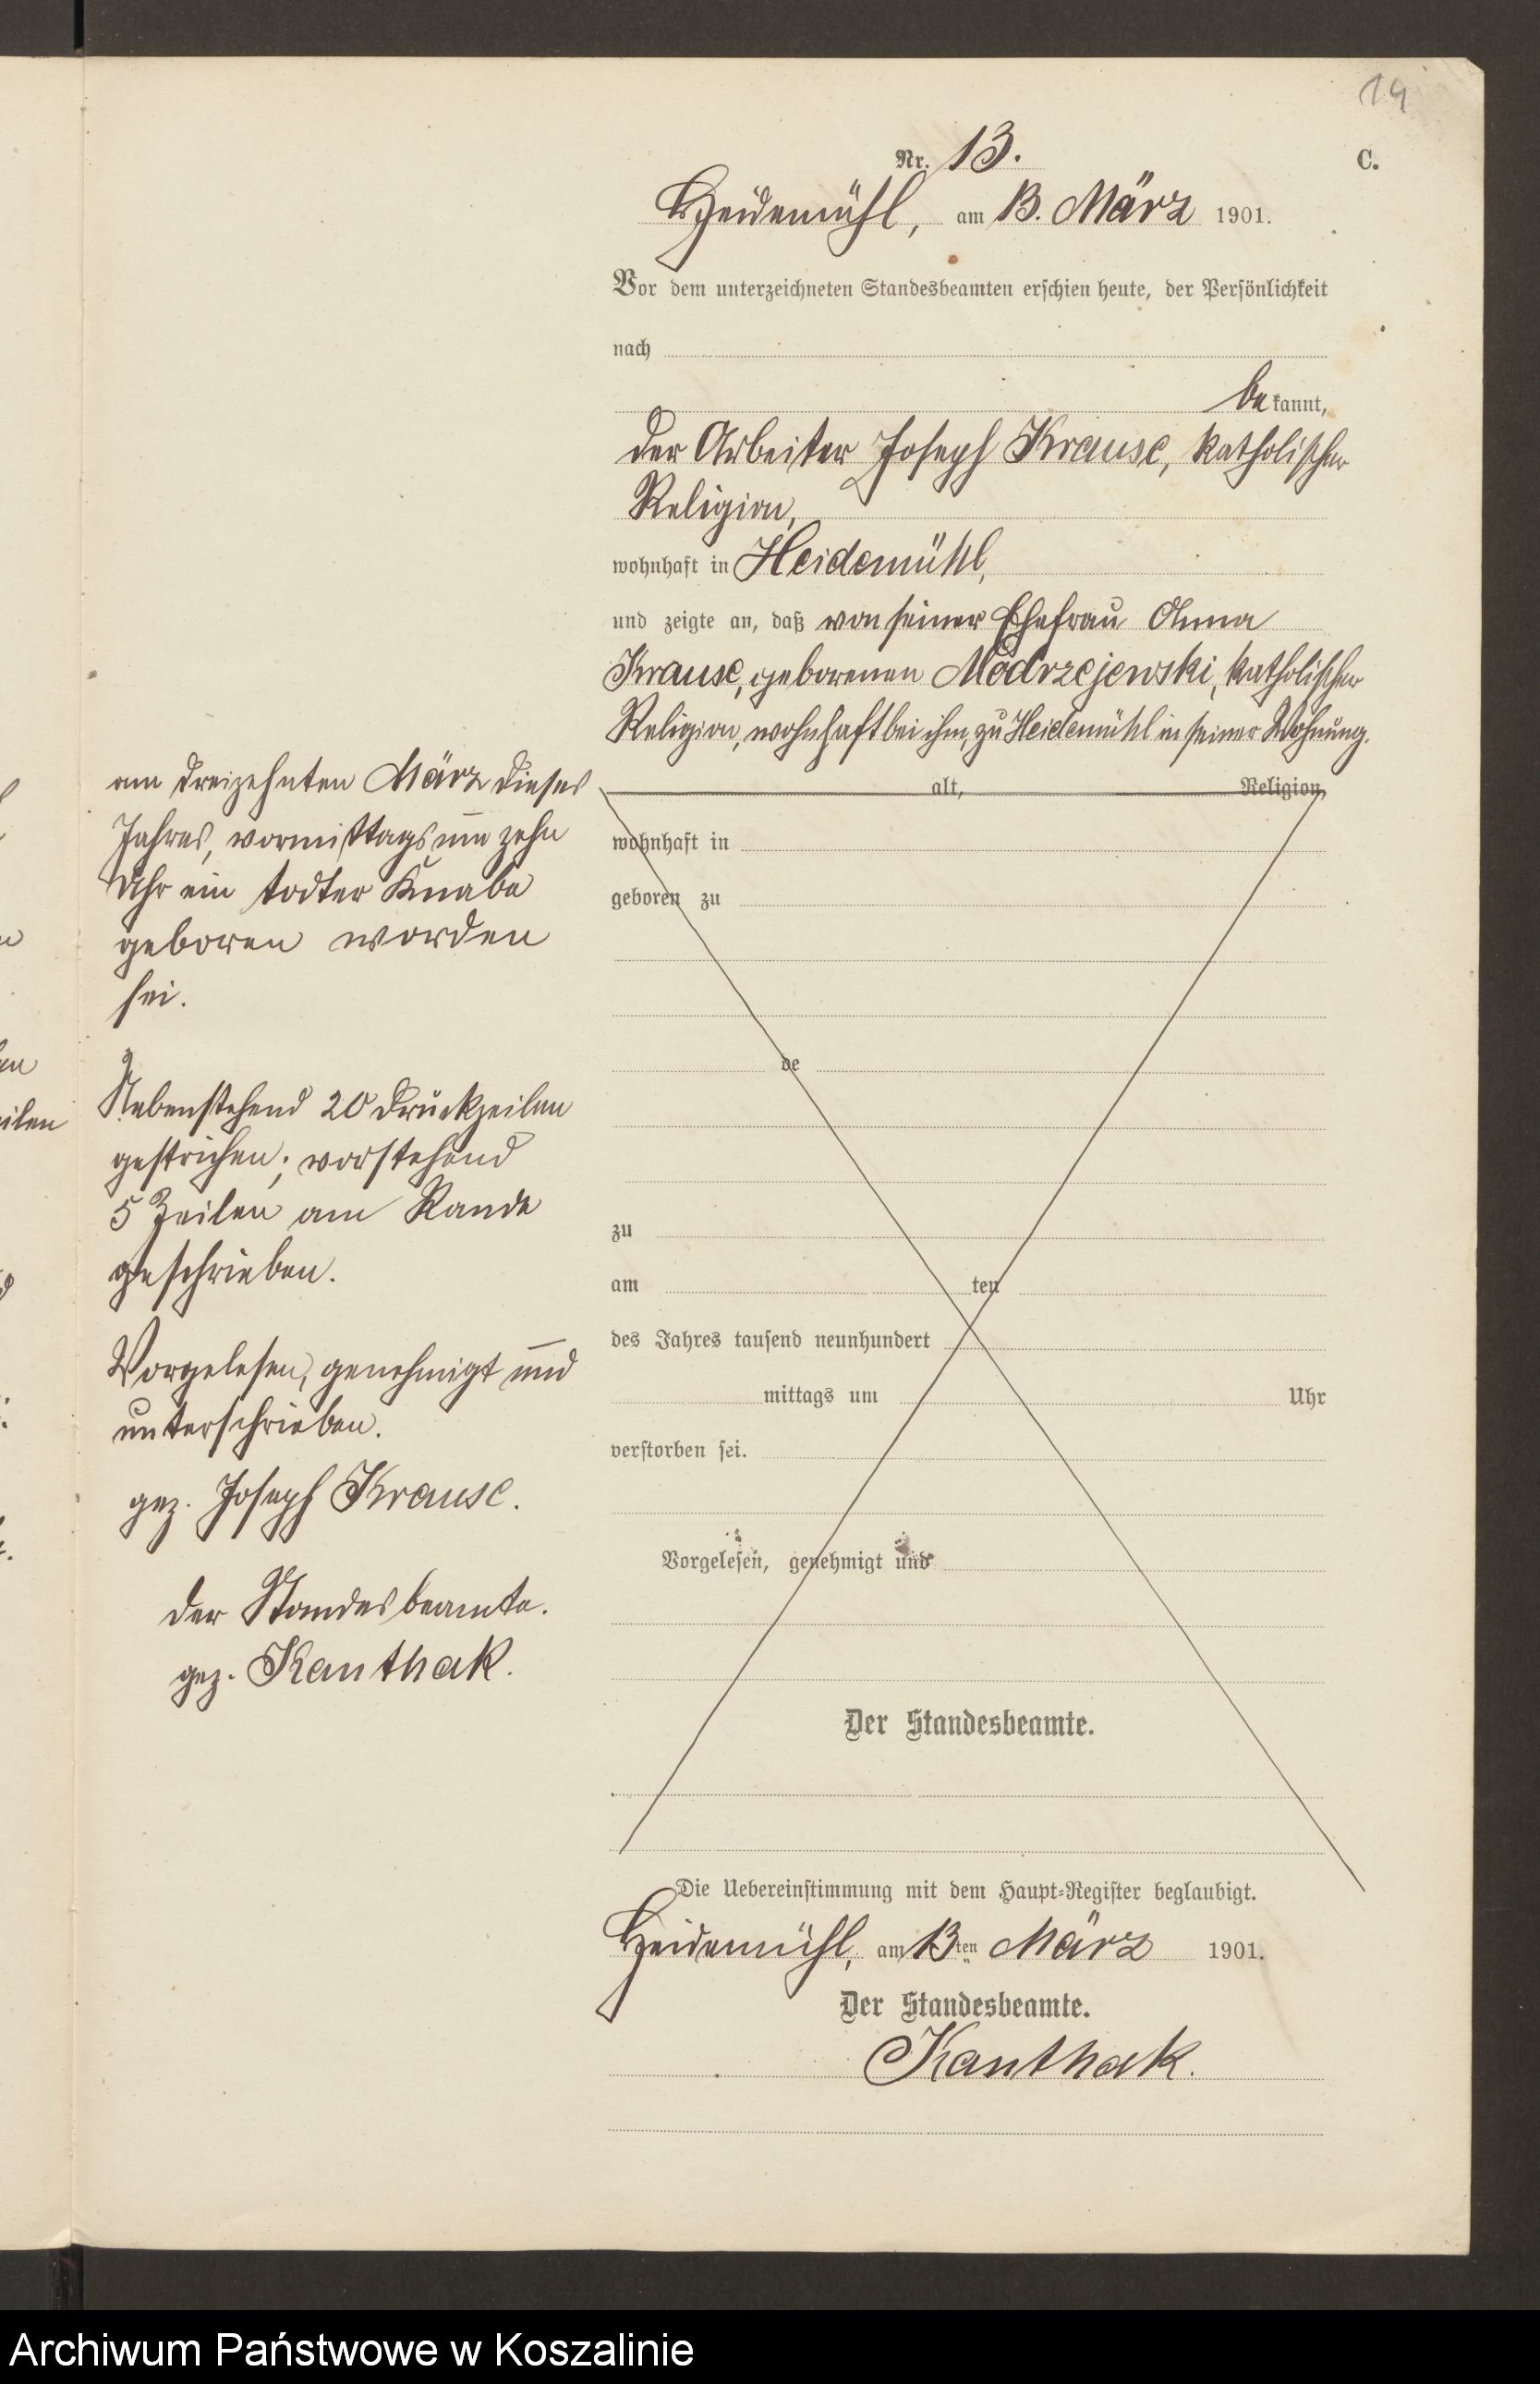 14
Nr. 13.
C.
Heidemühl, am 13. März 1901.
Vor dem unterzeichneten Standesbeamten erschien heute, der Persönlichkeit
nach
be kannt,
der Arbeiter Joseph Krause, katholischer
Religion,
wohnhaft in Heidemühl,
und zeigte an, daß von seiner Ehefrau Anna
Krause, geborenen Modrzejewski, katholischer
Religion, wohnhaft bei ihm, zu Heidemühl in seiner Wohnung.
am dreizehnten März dieses
Jahres, vormittags um zehn
Uhr ein todter Knabe
geboren worden
sei.
Nebenstehend 20 Druckzeilen
gestrichen; vorstehend
5 Zeilen am Rande
geschrieben.
Vorgelesen, genehmigt und
unterschrieben.
gez. Joseph Krause.
Der Standesbeamte.
gez. Kanthak.
alt, Religion,
wohnhaft in
geboren zu
de
zu
am ten
des Jahres tausend neunhundert
mittags um Uhr
verstorben sei.
Vorgelesen, genehmigt und
Der Standesbeamte.
Die Uebereinstimmung mit dem Haupt-Register beglaubigt.
Heidemühl, am 13ten März 1901.
Der Standesbeamte.
Kanthak.
Archiwum Państwowe w Koszalinie